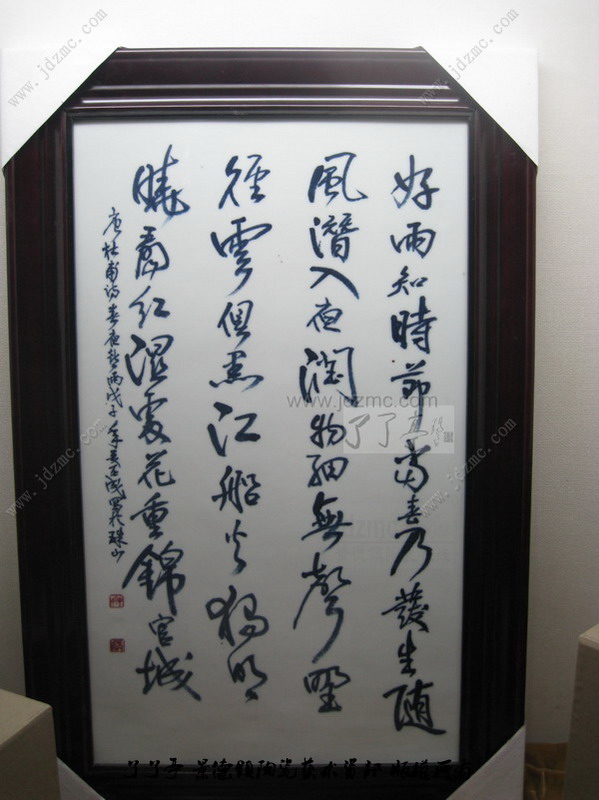 好雨知時節當春乃發生隨
風潛入夜潤物細無聲野
徑雲俱黑江船火獨明
曉看紅濕處花重錦官城
唐杜甫詩春夜喜雨戊子年 於珠山
www.jdzmc.com
www.jdzmc.com
www.jdzmc.com
www.jdzmc.com
www.jdzmc.com
了了亭
了了亭 景德镇陶瓷艺术赏析 版权所有